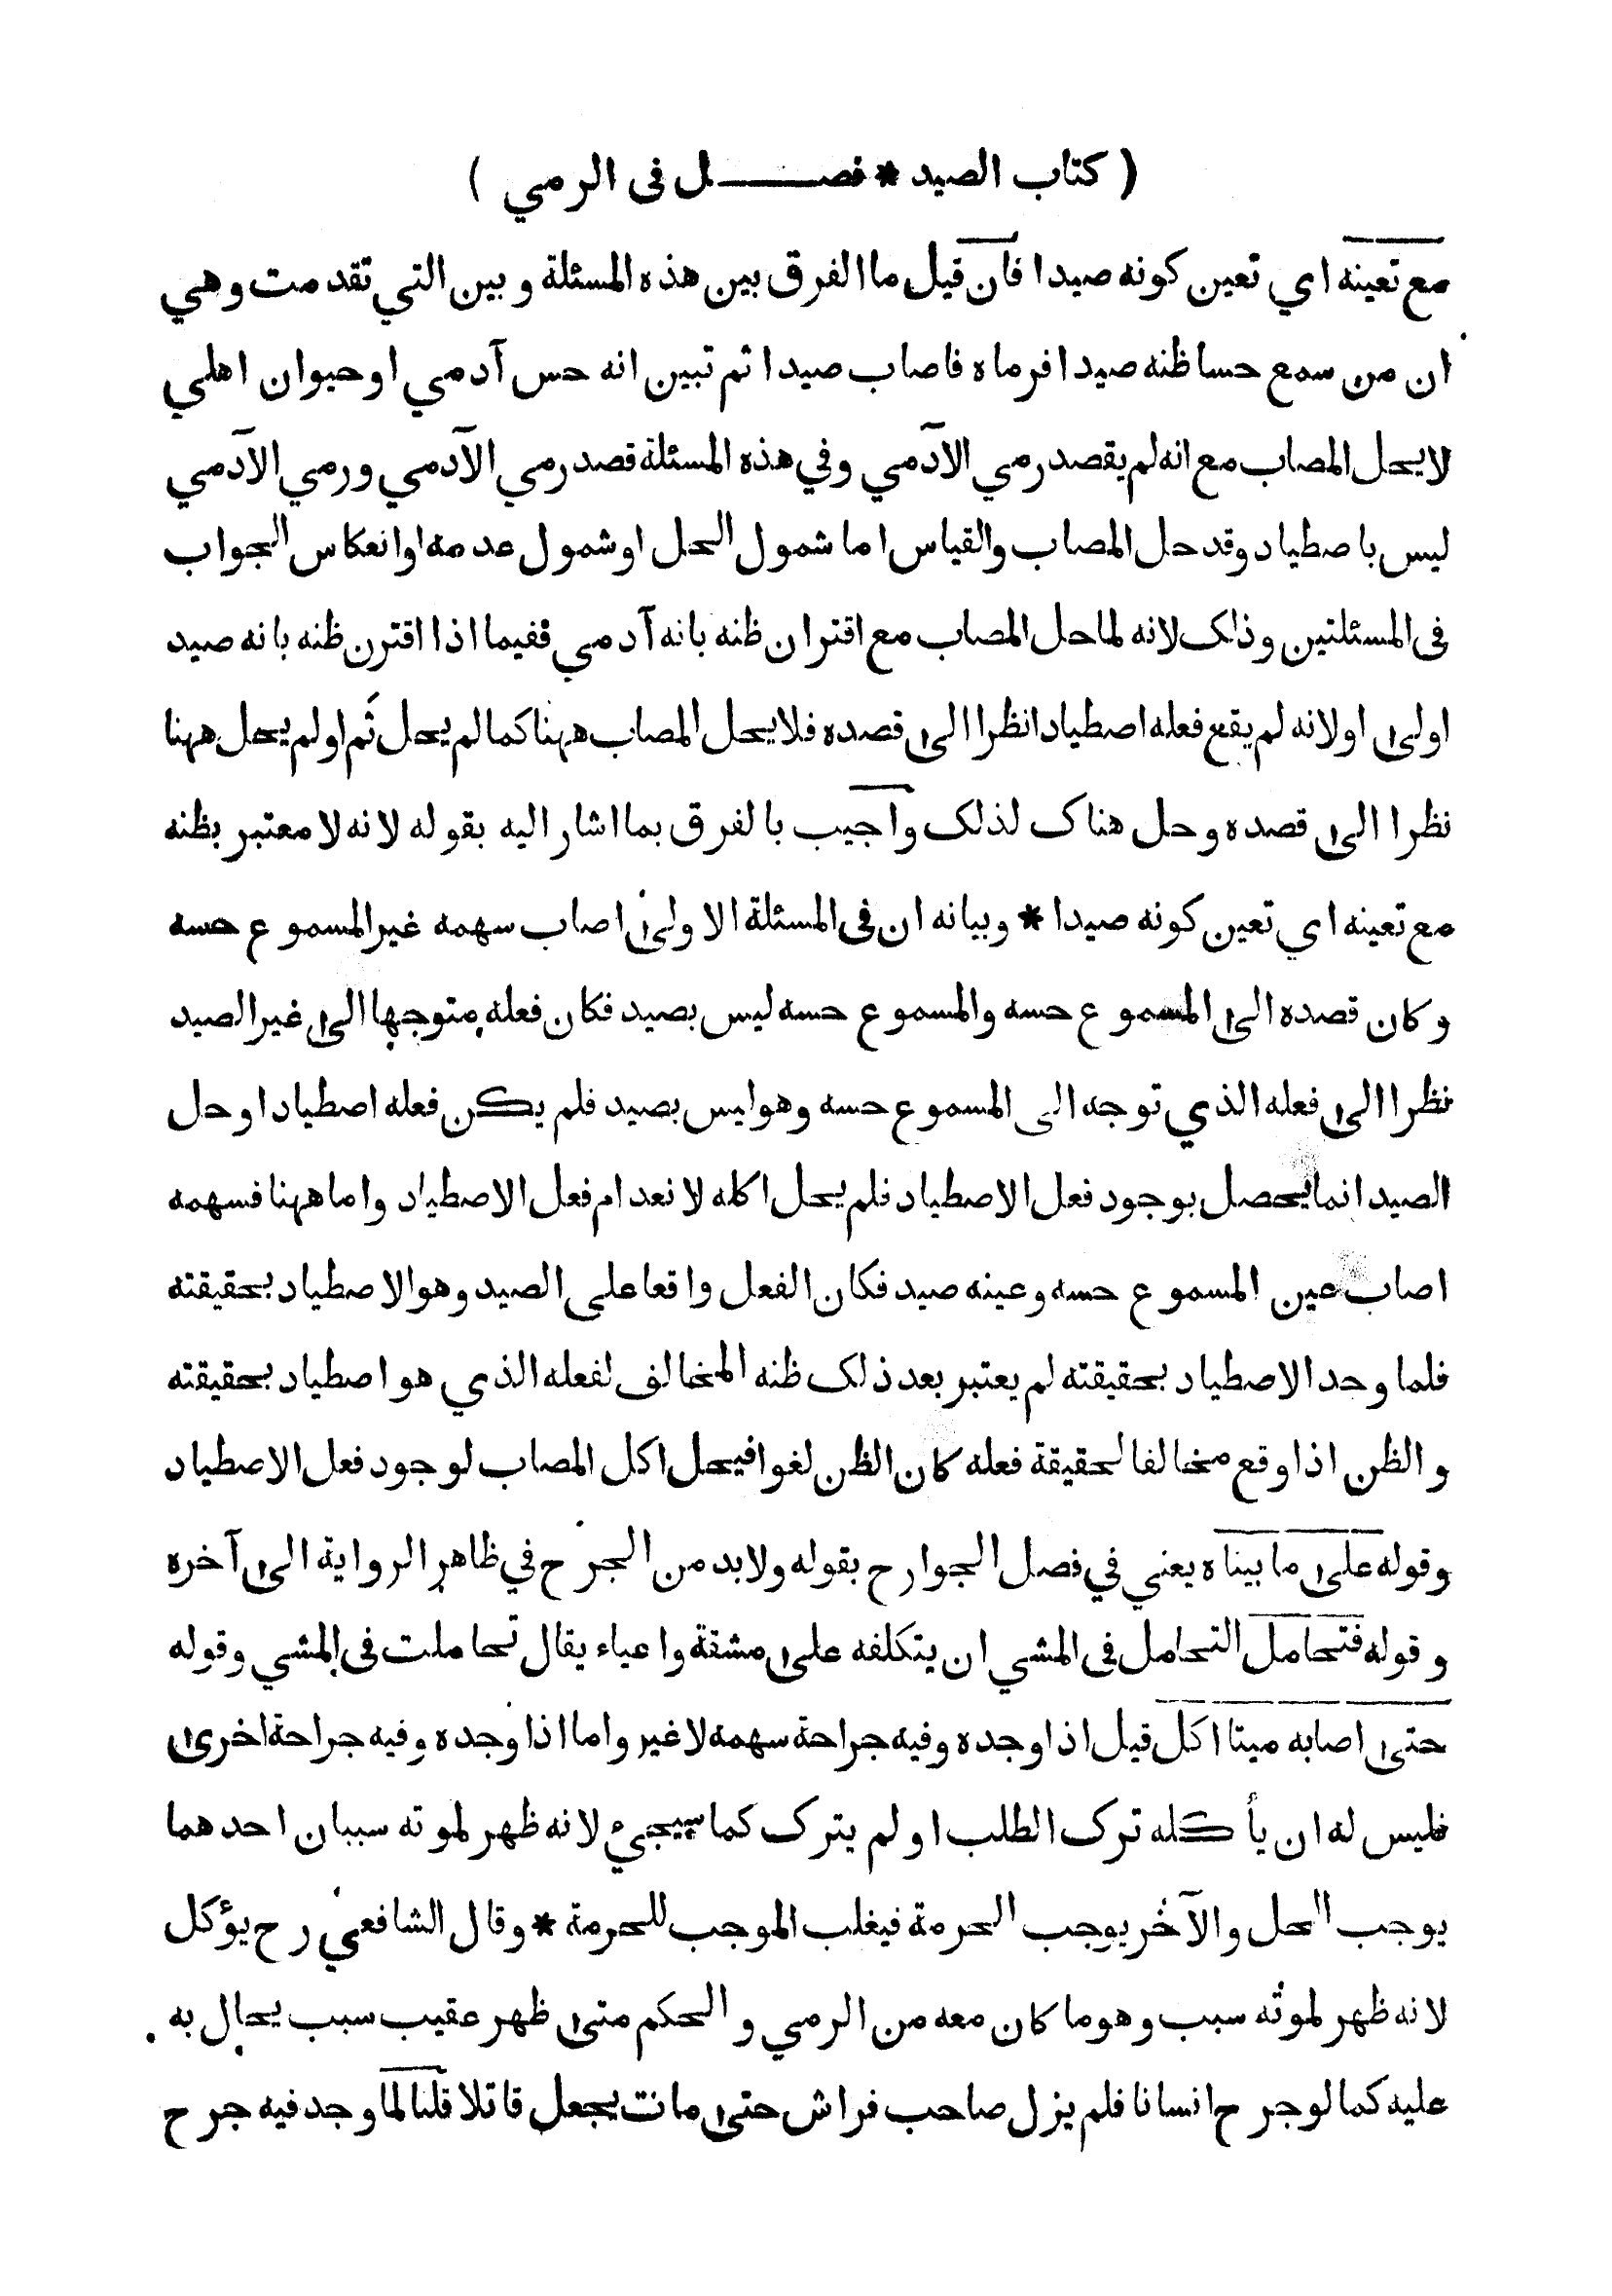 ( كتاب الصيد * فصـــــل فى الرمي )
مع تعينه اي تعين كونه صيدا فان قيل ما الفرق بين هذه المسئلة وبين التي تقدمت وهي
ان من سمع حسا ظنه صيدا فرماه فاصاب صيدا ثم تبين انه حس آدمي او حيوان اهلي
لا يحل المصاب مع انه لم يقصد رمي الآدمي وفي هذه المسئلة قصد رمي الآدمي ورمي الآدمي
ليس باصطياد وقد حل المصاب والقياس اما شمول الحل او شمول عدمه او انعكاس الجواب
فى المسئلتين وذلك لانه لما حل المصاب مع اقتران ظنه بانه آدمي ففيما اذا اقترن ظنه بانه صيد
اولى او لانه لم يقع فعله اصطيادا نظرا الى قصده فلا يحل المصاب ههنا كما لم يحل ثم او لم يحل ههنا
نظرا الى قصده وحل هناك لذلك واجيب بالفرق بما اشار اليه بقوله لانه لا معتبر بظنه
مع تعينه اي تعين كونه صيدا * وبيانه ان فى المسئلة الاولى اصاب سهمه غير المسموع حسه
وكان قصده الى المسموع حسه والمسموع حسه ليس بصيد فكان فعله متوجها الى غير الصيد
نظرا الى فعله الذي توجه الى المسموع حسه وهو ليس بصيد فلم يكن فعله اصطيادا وحل
الصيد انما يحصل بوجود فعل الاصطياد فلم يحل اكله لانعدام فعل الاصطياد واما ههنا فسهمه
اصاب عين المسموع حسه وعينه صيد فكان الفعل واقعا على الصيد وهو الاصطياد بحقيقته
فلما وحد الاصطياد بحقيقته لم يعتبر بعد ذلك ظنه المخالف لفعله الذي هو اصطياد بحقيقته
والظن اذا وقع مخالفا لحقيقة فعله كان الظن لغوا فيحل اكل المصاب لوجود فعل الاصطياد
وقوله على ما بيناه يعني في فصل الجوارح بقوله ولا بد من الجرح في ظاهر الرواية الى آخره
وقوله فتحامل التحامل فى المشي ان يتكلفه على مشقة واعياء يقال تحاملت فى المشي وقوله
حتى اصابه ميتا اكل قيل اذا وجده وفيه جراحة سهمه لا غير واما اذا وجده وفيه جراحة اخرى
فليس له ان يأكله ترك الطلب او لم يترك كما سيجيء لانه ظهر لموته سببان احدهما
يوجب الحل والآخر يوجب الحرمة فيغلب الموجب للحرمة * وقال الشافعي رح يؤكل
لانه ظهر لموته سبب وهو ما كان معه من الرمي والحكم متى ظهر عقيب سبب يحال به
عليه كما لو جرح انسانا فلم يزل صاحب فراش حتى مات يجعل قاتلا قلنا لما وجد فيه جرح